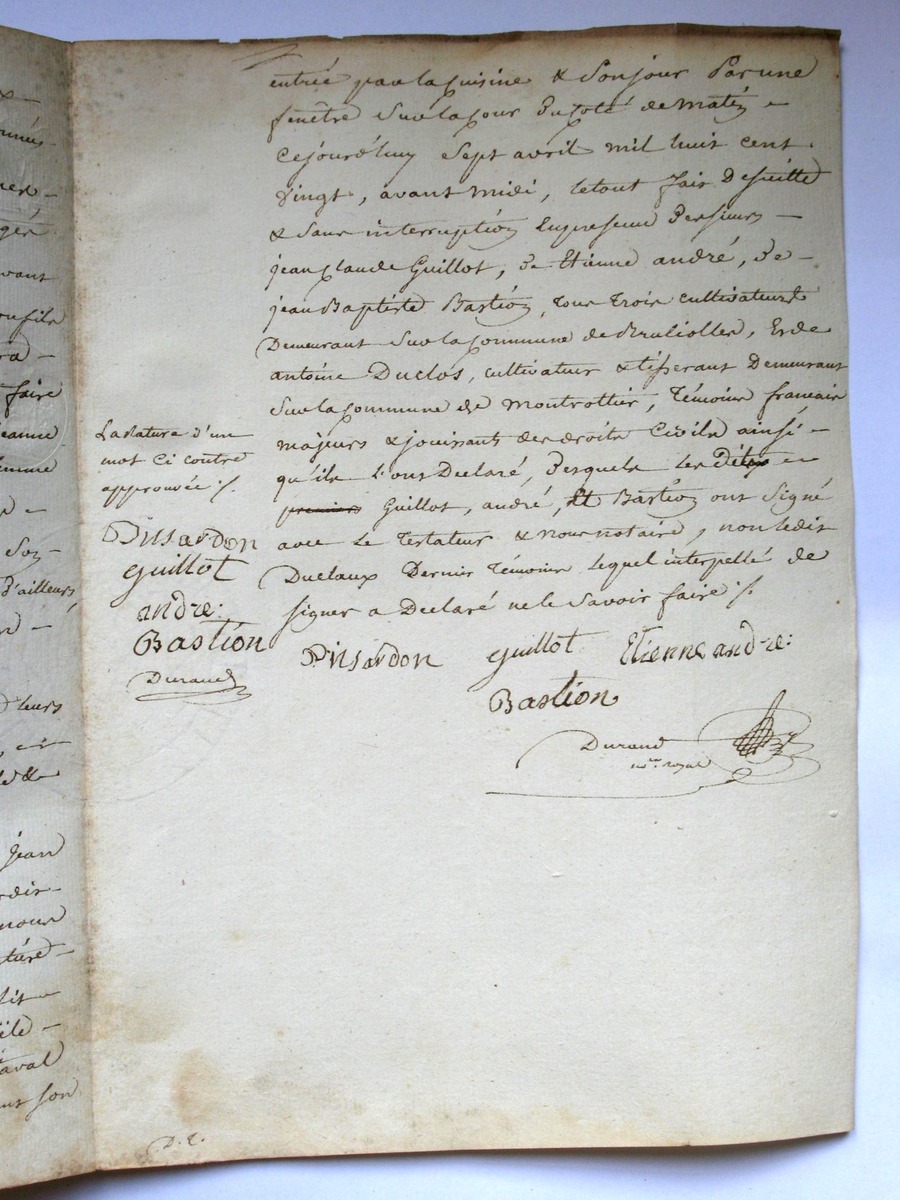 entrée par la cuisine & Son jour Par une
fenêtre Sur la cour Du coté de matin
Cejourd'huy Sept avril mil huit cent
vingt, avant midi, le tout fait De Suitte
& Sans interruption En presence De Sieurs
jean Claude Guillot, De Etienne andré, De
jean Baptiste Bastion, Tous Trois cultivateurs
Demeurant Sur la Commune de Brulliolles, Et de
antoine Duclos, cultivateur & tisserant Demeurant
Sur la Commune de Montrottier, Témoins français
majeurs & jouissants des droits Civils ainsi
qu'ils L'ont Declaré, Desquels Les
premiers Guillot, andré, Et Bastion ont Signé
avec Le Testateur & Nous notaire, non ledit
Duclaux Dernier Témoin lequel interpellé de
Signer a Declaré ne le Savoir faire ./.
La Rature d'un
mot Ci contre
approuvée ./.
Pinsardon
guillot
andre:
Bastion
Durand
Pinsardon guillot Etienne andre:
Bastion
Durand
nre royal
D. E.
x
faire
femme
D'ailleurs
jean
nous
son